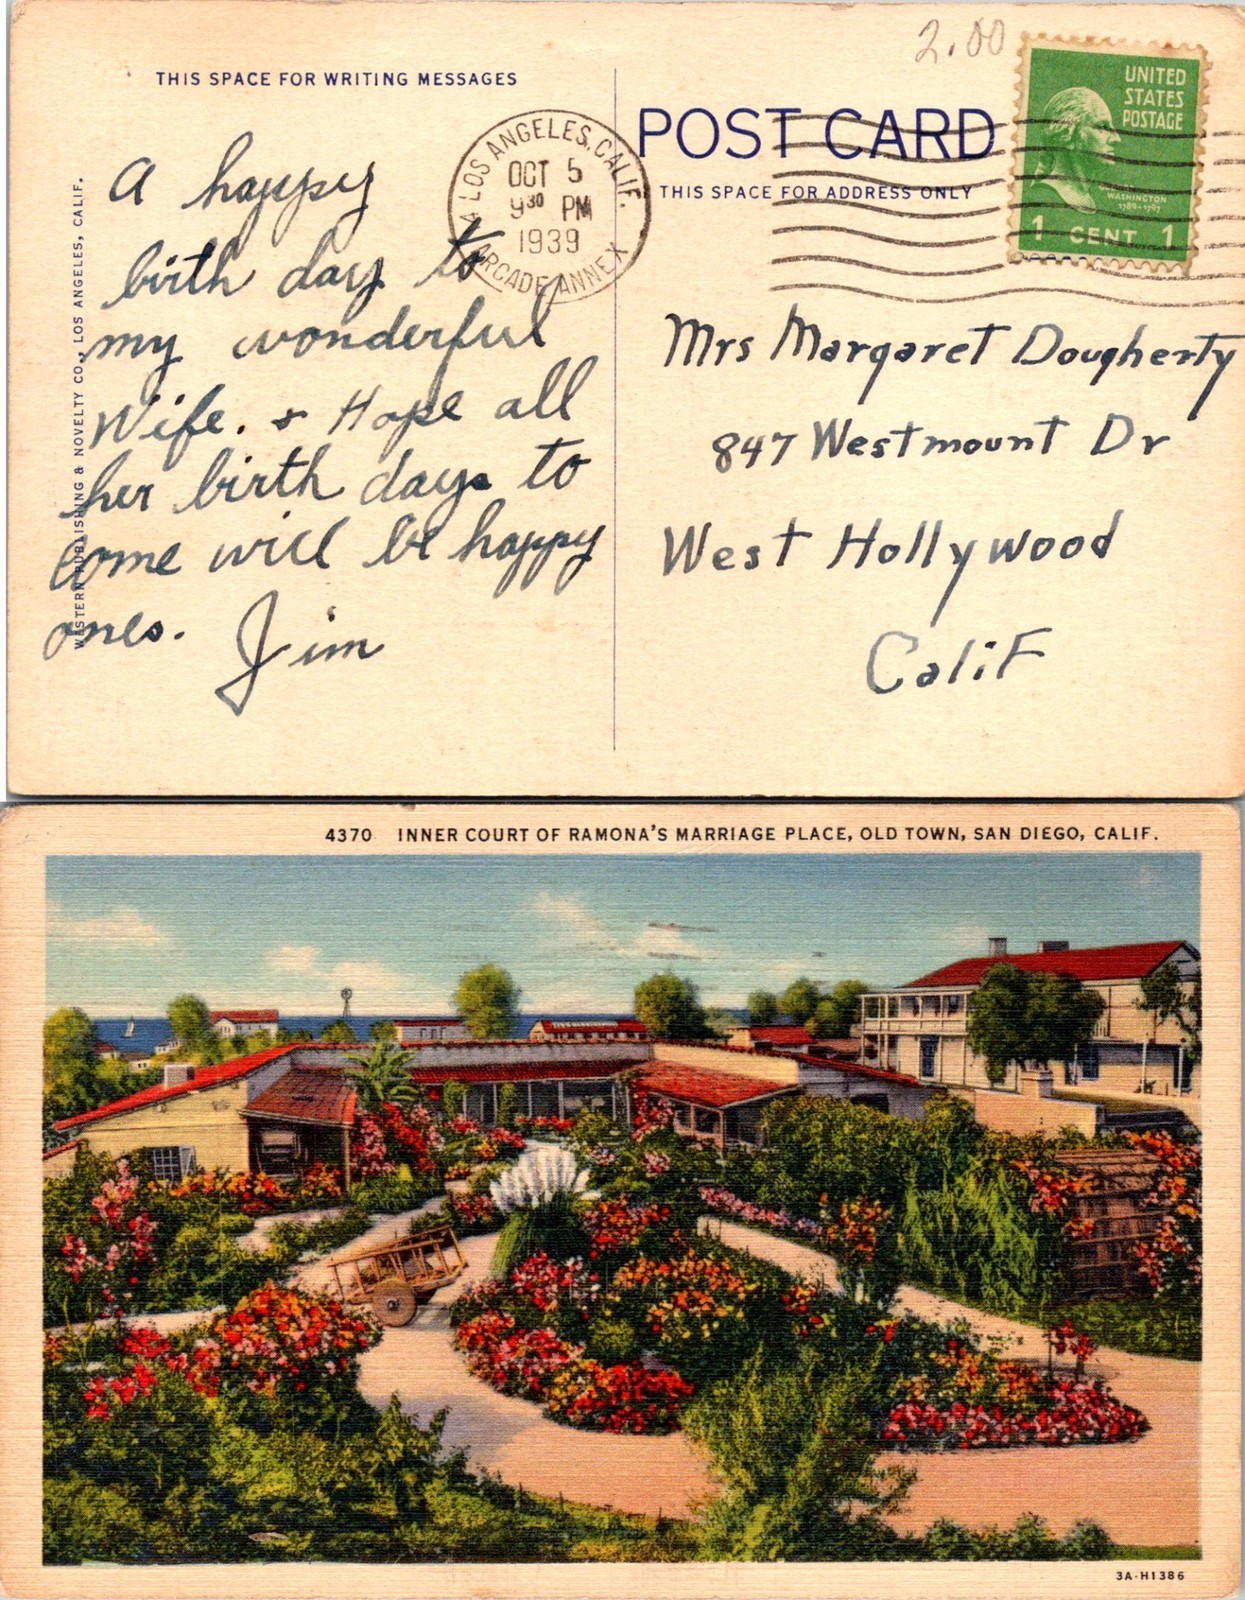 2.00
THIS SPACE FOR WRITING MESSAGES
A happy
birth day to
my wonderful
Wife. & Hope all
her birth days to
come will be happy
ones. Jim
WESTERN PUBLISHING & NOVELTY CO., LOS ANGELES, CALIF.
LOS ANGELES, CALIF.
OCT 5
9 30 PM
1939
ARCADE ANNEX
POST CARD
THIS SPACE FOR ADDRESS ONLY
UNITED
STATES
POSTAGE
WASHINGTON
1789-1797
1 CENT 1
Mrs Margaret Dougherty
847 Westmount Dr
West Hollywood
Calif
4370 INNER COURT OF RAMONA'S MARRIAGE PLACE, OLD TOWN, SAN DIEGO, CALIF.
3A-H1386